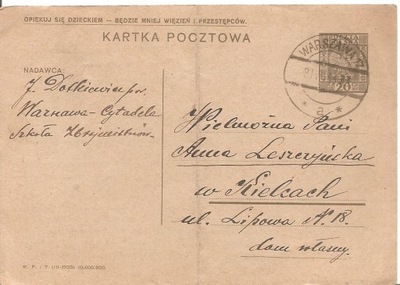 OPIEKUJ SIĘ DZIECKIEM — BĘDZIE MNIEJ WIĘZIEŃ I PRZESTĘPCÓW.
KARTKA POCZTOWA
NADAWCA:
J.
Warszawa-Cytadela
Szkoła Zbrojmistrzów
WARSZAWA
* a *
20
Wielmożna Pani
Anna Leszczyńska
w Kielcach
ul. Lipowa N. 18.
dom własny.